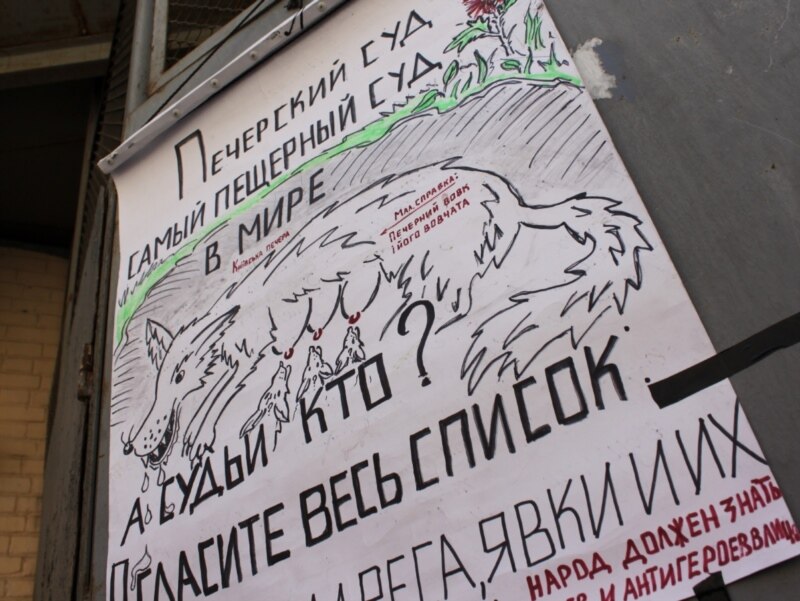 Печерский суд
самый пещерный суд
в мире
Київська печера
Мал. справка:
Печерний вовк
і його вовчата
А судьи кто?
Огласите весь список.
явки и их
народ должен знать
и антигероев в лицо